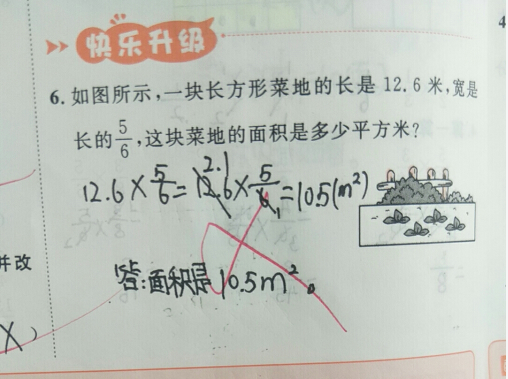 快乐升级
6. 如图所示,一块长方形菜地的长是 12.6 米,宽是
长的5/6,这块菜地的面积是多少平方米?
12.6×5/6=12.6×5/6=10.5(m²)
2.1
1
答:面积是10.5m²。
并改
4